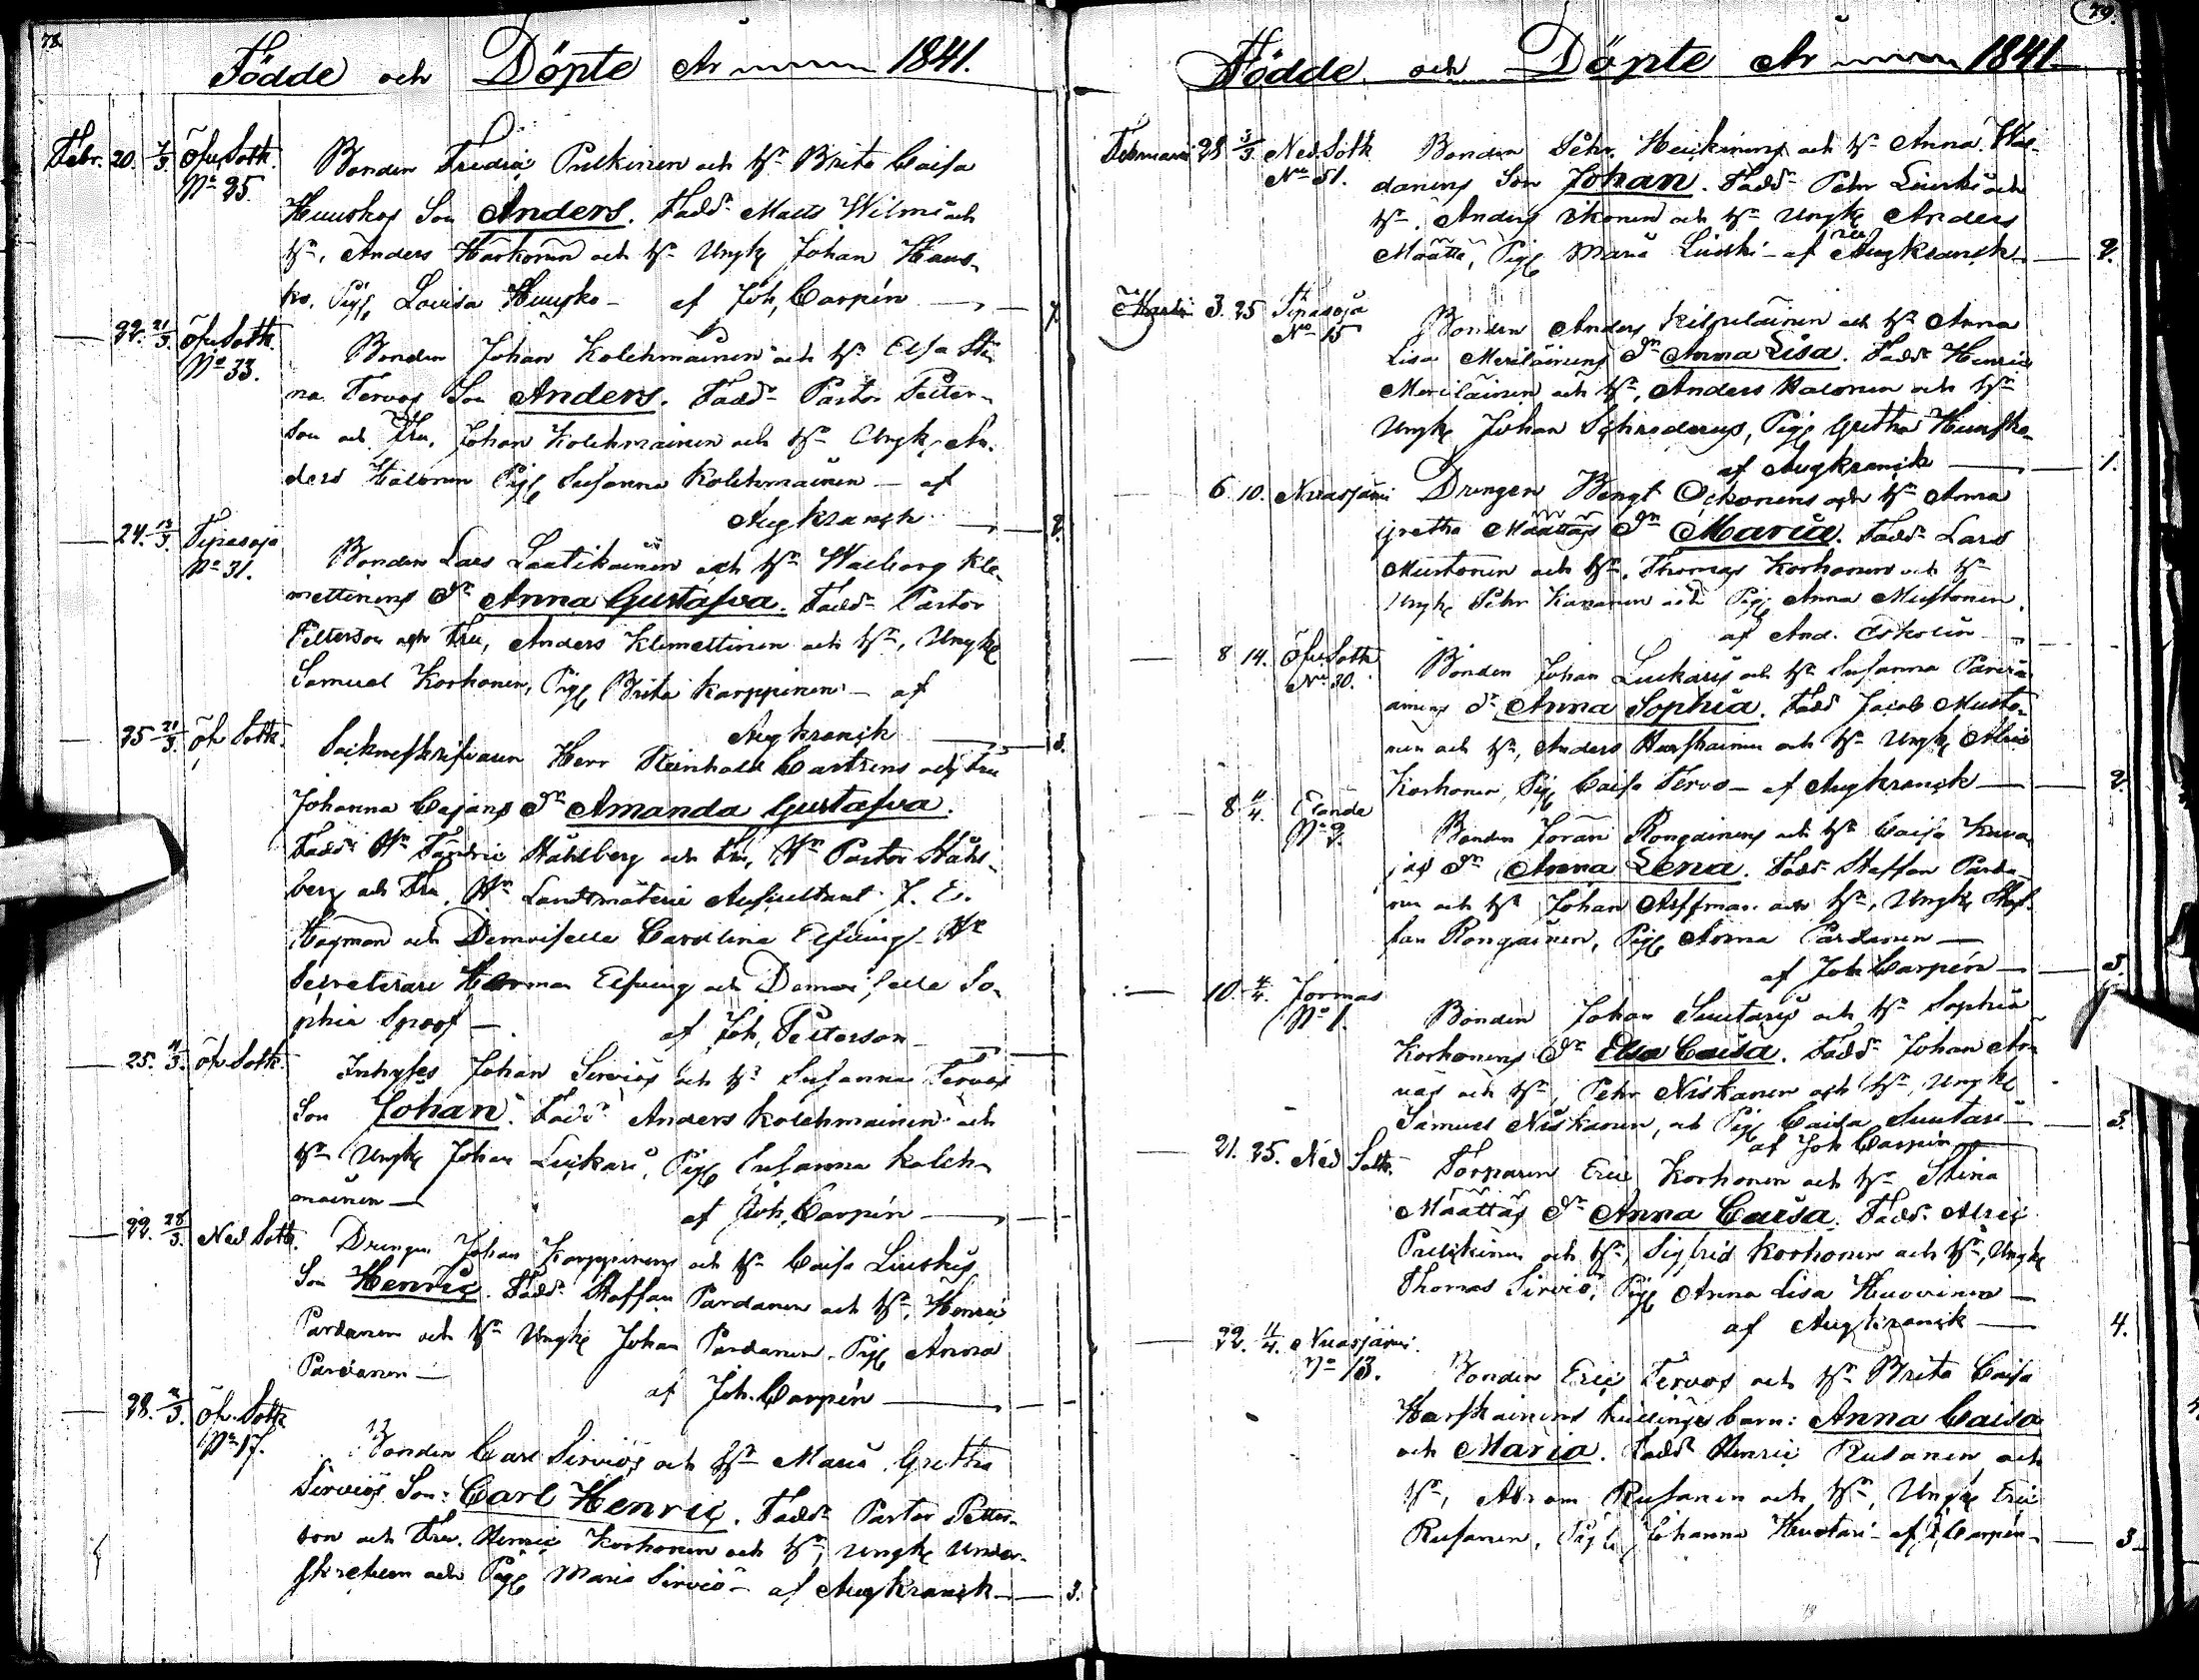 78.
Födde och Döpte År 1841.
Febr. 20. 7/3. Öfv Sotk. No 25.
Bonden Fredric Pulkinen och Hu Brita Caisa
Huuskos Son Anders. Fadd: Matts Wilmi och
Hu, Anders Härkönen och Hu Ungk Johan Huus-
ko, Pig Lovisa Huusko – af Joh, Carpén — 7.
22. 21/3. Öfv Sotk. No 33.
Bonden Johan Kolehmainen och Hu Elsa Sti
na Tervos Son Anders. Fadd: Pastor Petter-
son och Fru, Johan Kolehmainen och Hu Ungk, An-
ders Halonen Pig Susanna Kolehmainen – af
Aug Kranck — 2.
24. 13/3. Tipasoja No 31.
Bonden Lars Laatikainen och Hu Walborg Kle-
mettinens Dr Anna Gustafva. Fadd: Pastor
Petterson och Fru, Anders Klemettinen och Hu, Ungk
Samuel Korhonen, Pig Brita Karppinen – af
Aug Kranck — 3.
25 21/3. Öf. Sotk.
Socknskrifvaren Herr Reinhold Castrens och Fru
Johanna Cajans Dr Amanda Gustafva.
Fadd: Hr Fändric Ståhlberg och Fru, Hr Pastor Ståhl-
berg och Fru, Hr Landtmäteri Auscultant J. E.
Hagman och Demoiselle Carolina Elfving Hr
Secreterare Herman Elfving och Demoiselle So-
phia Sproof – af Joh, Petterson
25. 11/3. Öf. Sotk.
Inhyses Johan Serviös och Hu Susanna Tervos
Son Johan. Fadd: Anders Kolehmainen och
Hu Ungk Johan Luckari, Pig Susanna Koleh-
mainen — af Joh, Carpén —
22. 28/3. Ned Sotk.
Drengen Johan Karppinens och Hu Caisa Liuskis
Son Henric. Fadd: Staffan Pardanen och Hu, Henric
Pardanen och Hu Ungk Johan Pardanen, Pig Anna
Pardanen —
af Joh. Carpén —
28. /3. Öf. Sotk No 17.
Bonden Carl Serviös och Hu Maria Gretha
Serviös Son: Carl Henric. Fadd: Pastor Petter-
son och Fru, Henric Korhonen och Hu, Ungk Under-
skrefven och Pig Maria Serviö – af Aug Kranck — 3.
79.
Födde och Döpte År 1841
Februarii 28 3/3 Ned. Sotk No 51.
Bonden Pehr Heickinens och Hu Anna
danens Son Johan. Fadd: Pehr Liuski och
Hu, Anders Ikonen och Hu Ungk Anders
Määttä, Pig Maria Liuski – af Aug Kranck — 2.
Martii 3. 25 Tipasoja No 15
Bonden Anders Kilpeläinen och Hu Anna
Lisa Meriläinens Dr Anna Lisa. Fadd: Henric
Meriläinen och Hu, Anders Halonen och Hu
Ungk Johan Schroderus, Pig Gretha Huusko
af Aug Kranck — 1.
6. 10. Nuasjärvi
Drengen Bengt Ockonens och Hu Anna
Gretha Määttäs Dr Maria. Fadd: Lars
Mustonen och Hu, Thomas Korhonen och Hu
Ungk Pehr Kananen och Pig Anna Mustonen.
af And. Eskolin
8 14. Öfv Sotk No 30.
Bonden Johan Luckaris och Hu Susanna
ainens Dr Anna Sophia. Fadd Jacob Musto-
nen och Hu, Anders Karskainen och Hu Ungk Alric
Korhonen, Pig Caisa Tervo – af Aug Kranck — 2.
8 /4. No 2.
Bonden Jöran Rongainens och Hu Caisa Kuva
jas Dr Anna Lena. Fadd: Staffan Parda-
nen och Hu Johan Aeffman och Hu, Ungk Staf-
fan Rongainen, Pig Anna Pardanen —
af Joh Carpén — 3.
10. 4/4. Jormas No 1.
Bonden Johan Suutaris och Hu Sophia
Korhonens Dr Elsa Caisa. Fadd: Johan Är-
väs och Hu, Pehr Niskanen och Hu, Ungk
Samuel Niskanen, och Pig Caisa Suutari — 3.
af Joh Carpén
21. 25. Ned Sotk.
Torparen Eric Korhonen och Hu Stina
Määttäs Dr Anna Caisa. Fadd. Alric
Pulckinen och Hu, Sigfrid Korhonen och Hu, Ungk
Thomas Serviö, Pig Anna Lisa Huovinen —
af Aug Kranck — 4.
22. 11/4. Nuasjärvi. No 13.
Bonden Eric Tervos och Hu Brita Caisa
Karskainens tvillinge barn: Anna Caisa
och Maria. Fadd: Henric Rusanen och
Hu, Abram Rusanen och Hu, Ungk Eric
Rusanen, Pig Johanna Huotari – af J. Carpén — 3.